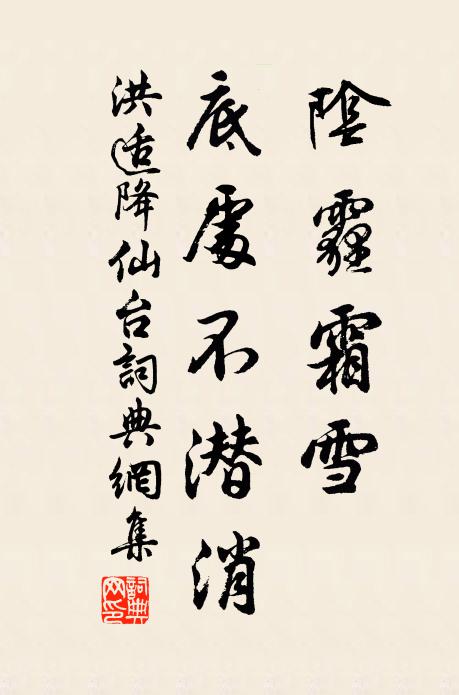 陰霾霜雪
底處不潛消
洪适降仙台詞典網集
詞典網印